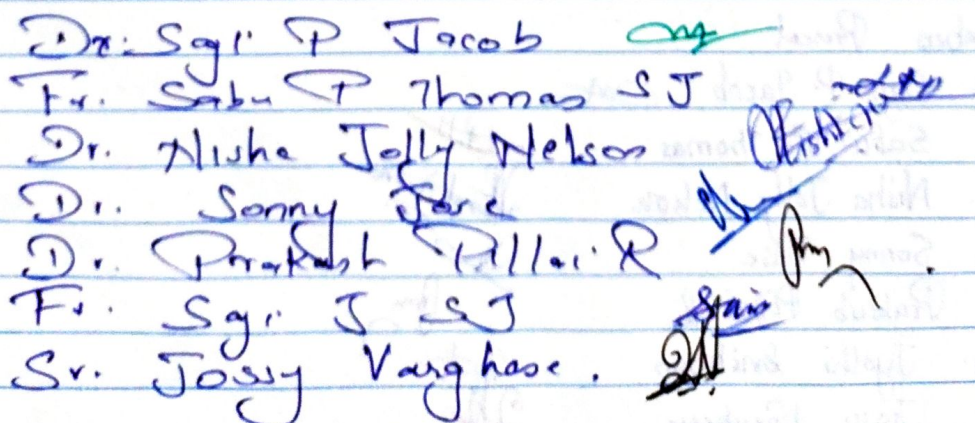 Dr. Saji P Jacob
Fr. Sabu P Thomas SJ
Dr. Nisha Jolly Nelson
Dr. Sonny Jose
Dr. Prakash Pillai R
Fr. Saji J SJ
Sr. Jossy Varghese.